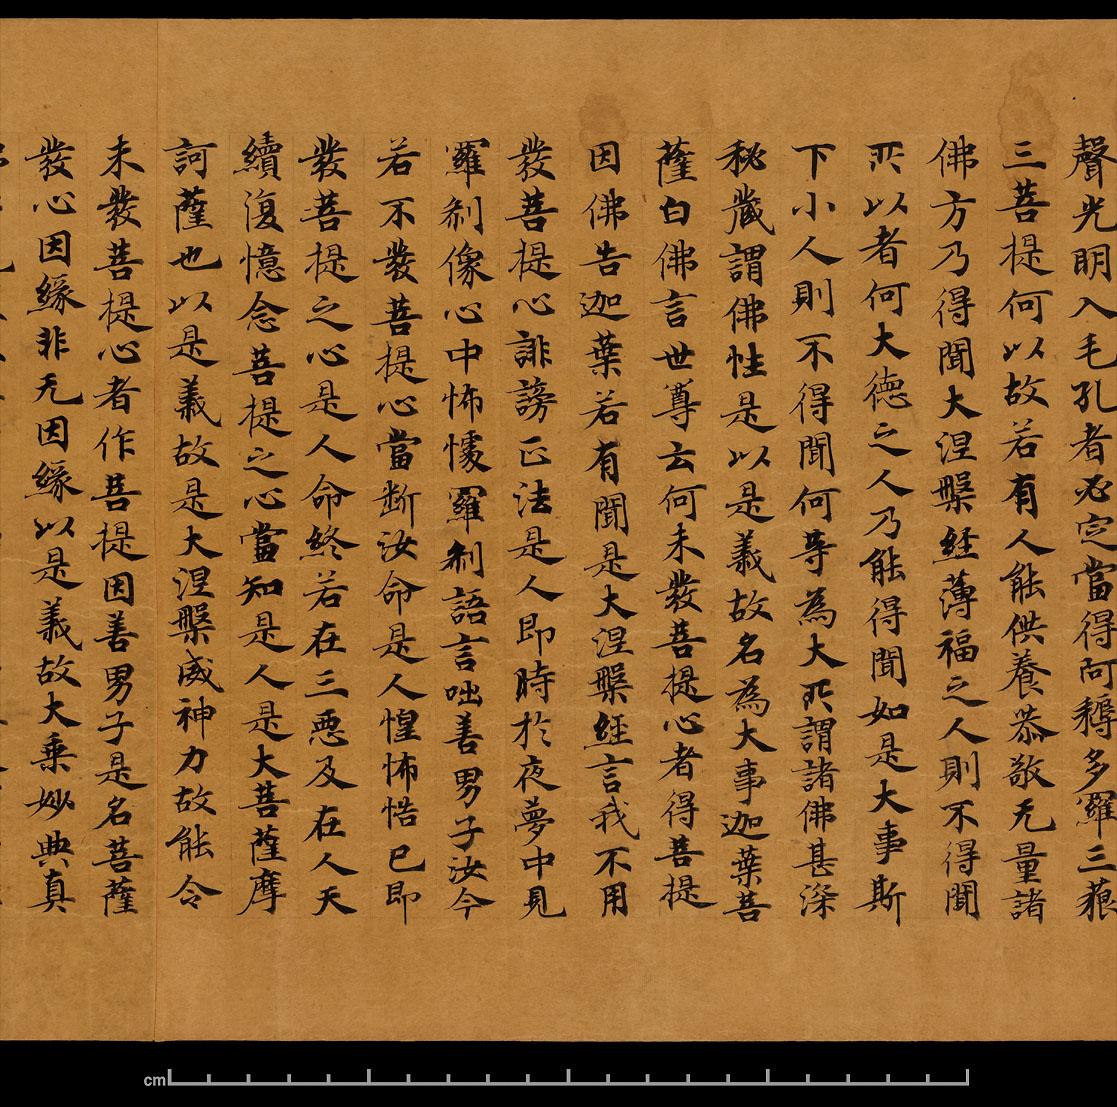 聲光明入毛孔者必定當得阿耨多羅三藐
三菩提何以故若有人能供養恭敬无量諸
佛方乃得聞大涅槃經薄福之人則不得聞
所以者何大德之人乃能得聞如是大事斯
下小人則不得聞何等為大所謂諸佛甚深
秘藏謂佛性是以是義故名為大事迦葉菩
薩白佛言世尊云何未發菩提心者得菩提
因佛告迦葉若有聞是大涅槃經言我不用
發菩提心誹謗正法是人即時於夜夢中見
羅剎像心中怖懅羅剎語言咄善男子汝今
若不發菩提心當斷汝命是人惶怖悟已即
發菩提之心是人命終若在三惡及在人天
續復憶念菩提之心當知是人是大菩薩摩
訶薩也以是義故是大涅槃威神力故能令
未發菩提心者作菩提因善男子是名菩薩
發心因緣非无因緣以是義故大乘妙典真
cm